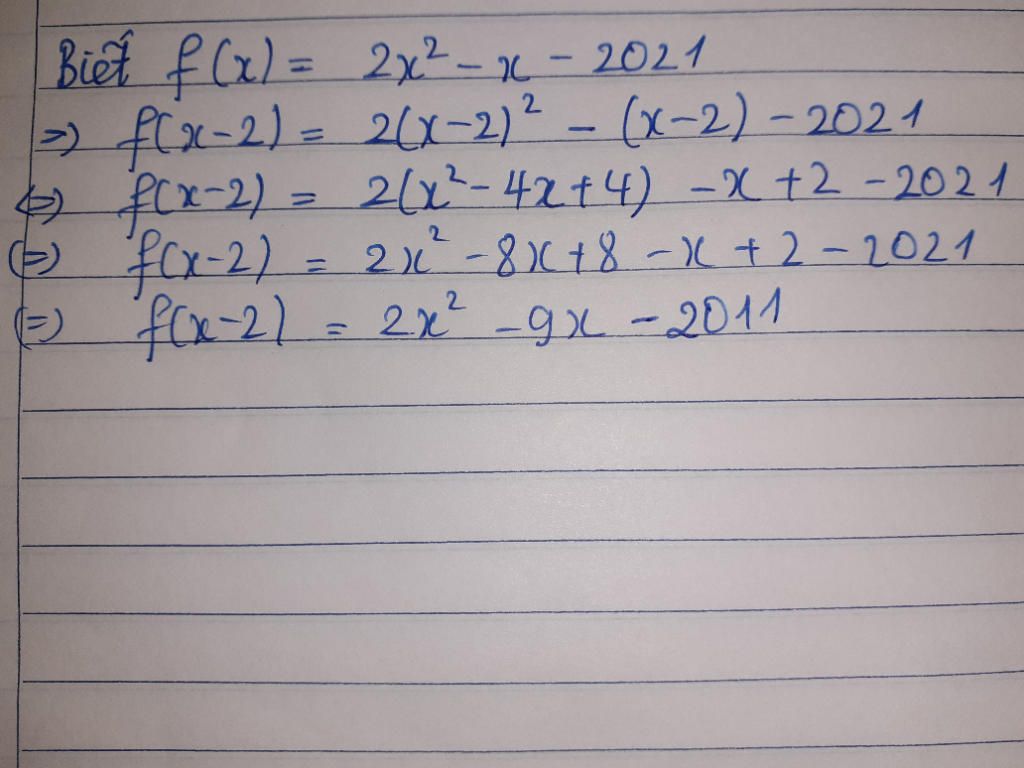 Biết f(x) = 2x² - x - 2021
=> f(x-2) = 2(x-2)² - (x-2) - 2021
<=> f(x-2) = 2(x²-4x+4) -x +2 -2021
(=) f(x-2) = 2x² -8x+8 -x +2 - 2021
(=) f(x-2) = 2x² -9x -2011